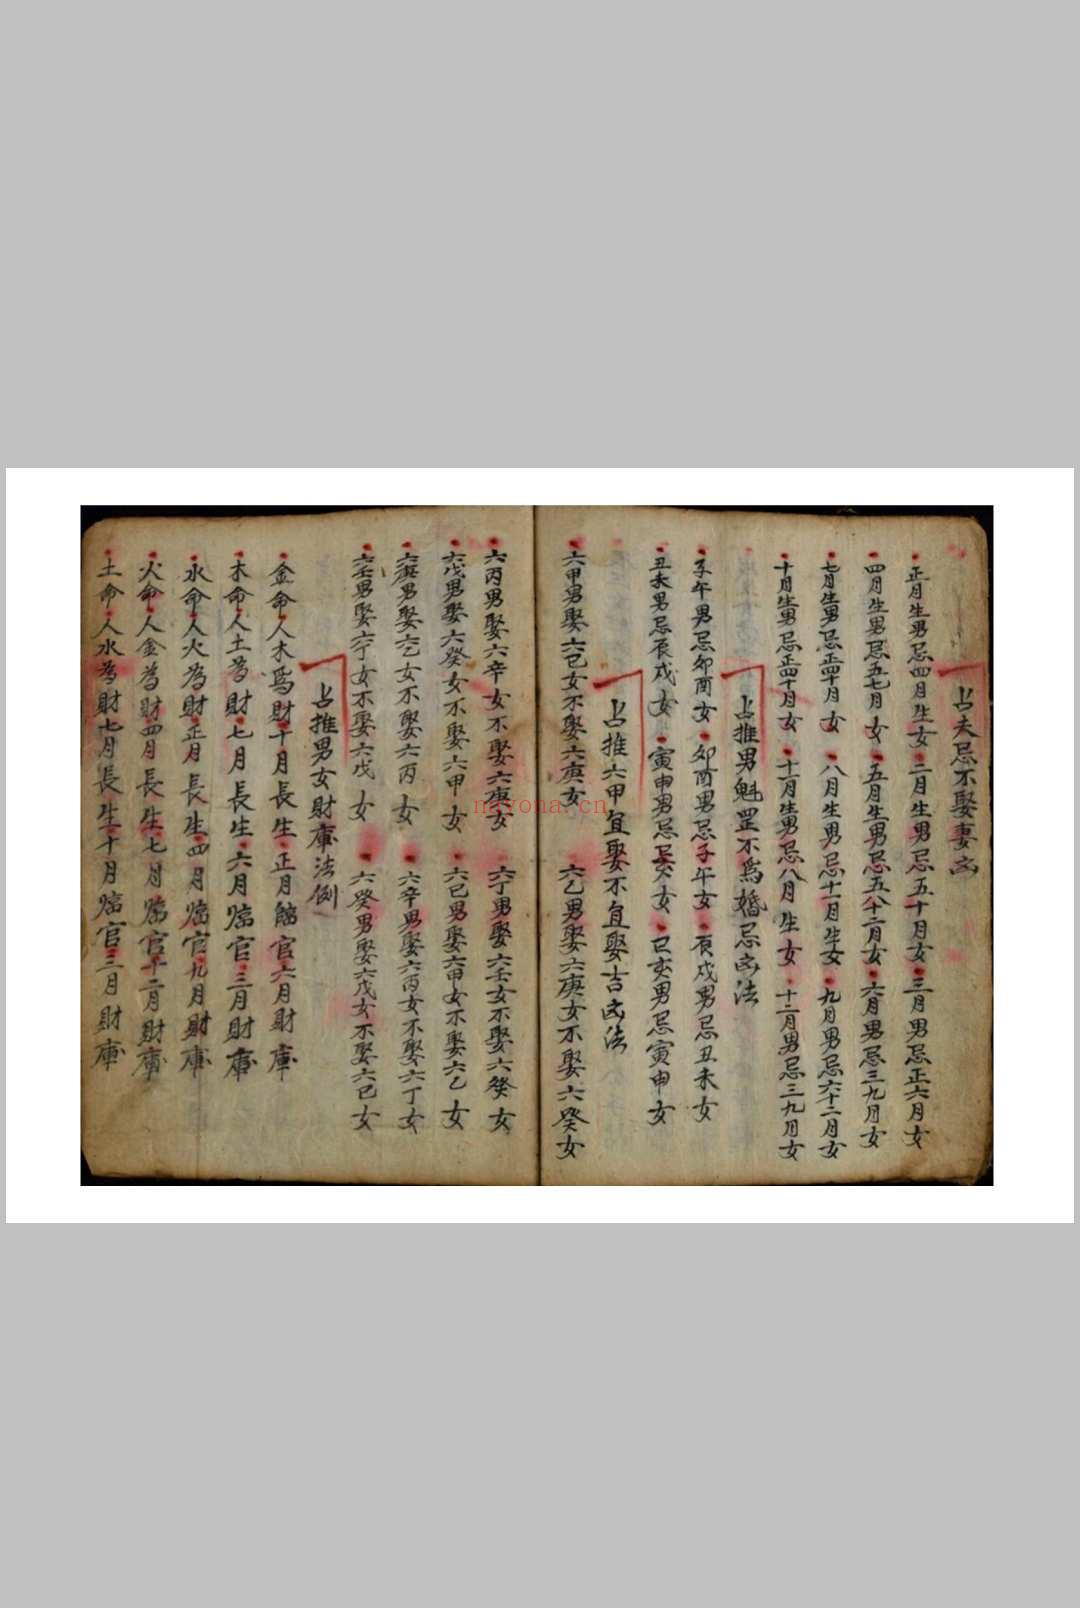 占夫忌不娶妻凶
正月生男忌四月生女 二月生男忌五十月女 三月男忌正六月女
四月生男忌五七月女 五月生男忌五八十二月女 六月男忌三九月女
七月生男忌正四十月女 八月生男忌十一月生女 九月男忌六十二月女
十月生男忌正四十月女 十一月生男忌八月生女 十二月男忌三九月女
占推男魁罡不為婚忌凶法
子午男忌卯酉女 卯酉男忌子午女 辰戌男忌丑未女
丑未男忌辰戌女 寅申男忌巳亥女 巳亥男忌寅申女
占推六甲宜娶不宜娶吉凶法
六甲男娶六己女不娶六庚女 六乙男娶六庚女不娶六癸女
六丙男娶六辛女不娶六庚女 六丁男娶六壬女不娶六癸女
六戊男娶六癸女不娶六甲女 六己男娶六甲女不娶六乙女
六庚男娶六乙女不娶六丙女 六辛男娶六丙女不娶六丁女
六壬男娶六丁女不娶六戊女 六癸男娶六戊女不娶六己女
占推男女財庫法例
金命人木爲財十月長生正月臨官六月財庫
木命人土為財七月長生六月臨官三月財庫
水命人火為財正月長生四月臨官九月財庫
火命人金為財四月長生七月臨官十二月財庫
土命人水為財七月長生十月臨官三月財庫
nayona.cn